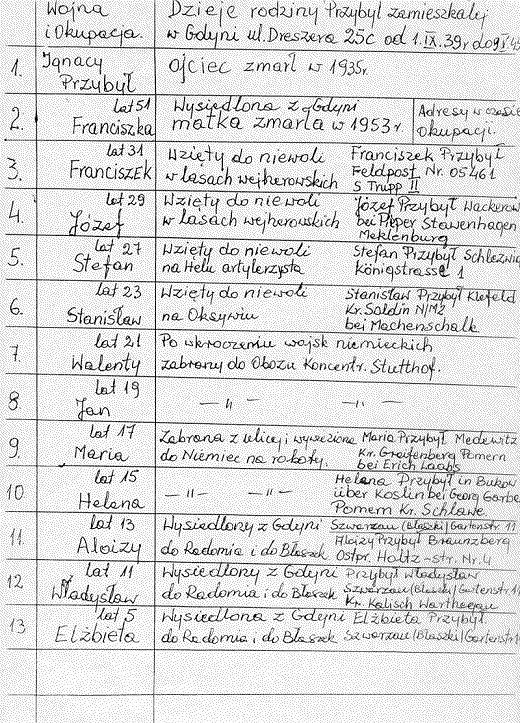 Wojna
i Okupacja.
Dzieje rodziny Przybył zamieszkałej
w Gdyni ul. Dreszera 25c od 1.IX.39r do 9.I.45
1.
Ignacy
Przybył
ojciec zmarł w 1935r.
2.
lat 51
Franciszka
Wysiedlona z Gdyni
matka zmarła w 1953r.
Adresy w czasie
Okupacji.
3.
lat 31
Franciszek
Wzięty do niewoli
w lasach wejherowskich
Franciszek Przybył
Feldpost Nr. 05461
S Trupp II
4.
lat 29
Józef
Wzięty do niewoli
w lasach wejherowskich
Józef Przybył Wackerow
bei Pieper Stawenhagen
Meklenburg
5.
lat 27
Stefan
Wzięty do niewoli
na Helu artylerzysta
Stefan Przybył Schlezwig
Königstrasse 1
6.
lat 23
Stanisław
Wzięty do niewoli
na Oksywiu
Stanisław Przybył Klefeld
Kr. Soldin N/M2
bei Machenschalk
7.
lat 21
Walenty
Po wkroczeniu wojsk niemieckich
zabrany do Obozu Koncentr. Stutthof.
8.
lat 19
Jan
— " — — " —
9.
lat 17
Maria
Zabrana z ulicy i wywieziona
do Niemiec na roboty.
Maria Przybył Medewitz
Kr. Greifenberg Pomern
bei Erich Laabs
10.
lat 15
Helena
— " — — " —
Helena Przybył in Bukow
über Köslin bei Georg Garbe
Pomern Kr. Schlawe.
11.
lat 13
Aloizy
Wysiedlony z Gdyni
do Radomia i do Błaszek
Szwarzau (Blaszki) Gartenstr. 11
Alojzy Przybył Braunzberg
Ostpr. Holtz-str. Nr. 4
12
lat 11
Władysław
Wysiedlony z Gdyni
do Radomia i do Błaszek
Przybył Władysław
Szwarzau (Blaszki) Gartenstr. 11
Kr. Kalisch Warthegau
13
lat 5
Elżbieta
Wysiedlona z Gdyni
do Radomia i do Błaszek
Elżbieta Przybył
Szwarzau (Blaszki) Gartenstr. 11